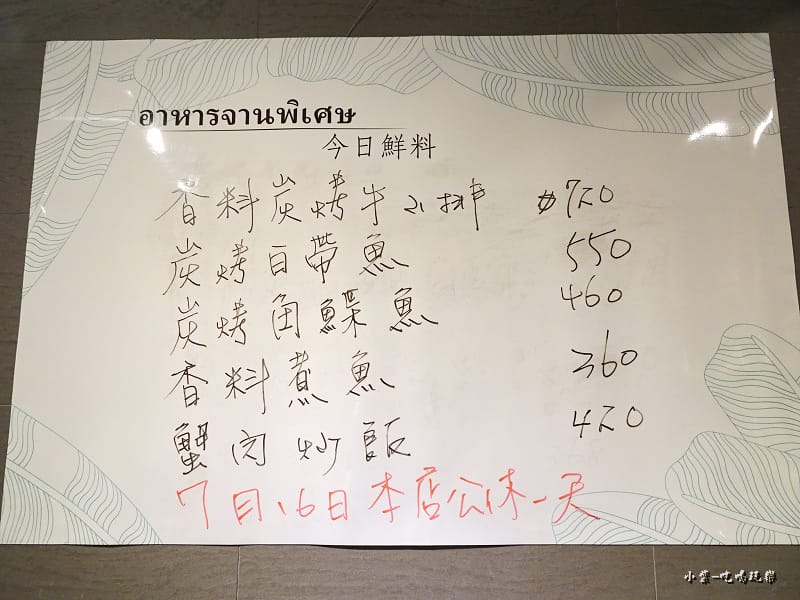 อาหารจานพิเศษ
今日鮮料
香料炭烤牛小排 $720
炭烤白帶魚 550
炭烤角鰈魚 460
香料煮魚 360
蟹肉炒飯 420
7月16日本店公休一天
小紫-吃喝玩樂